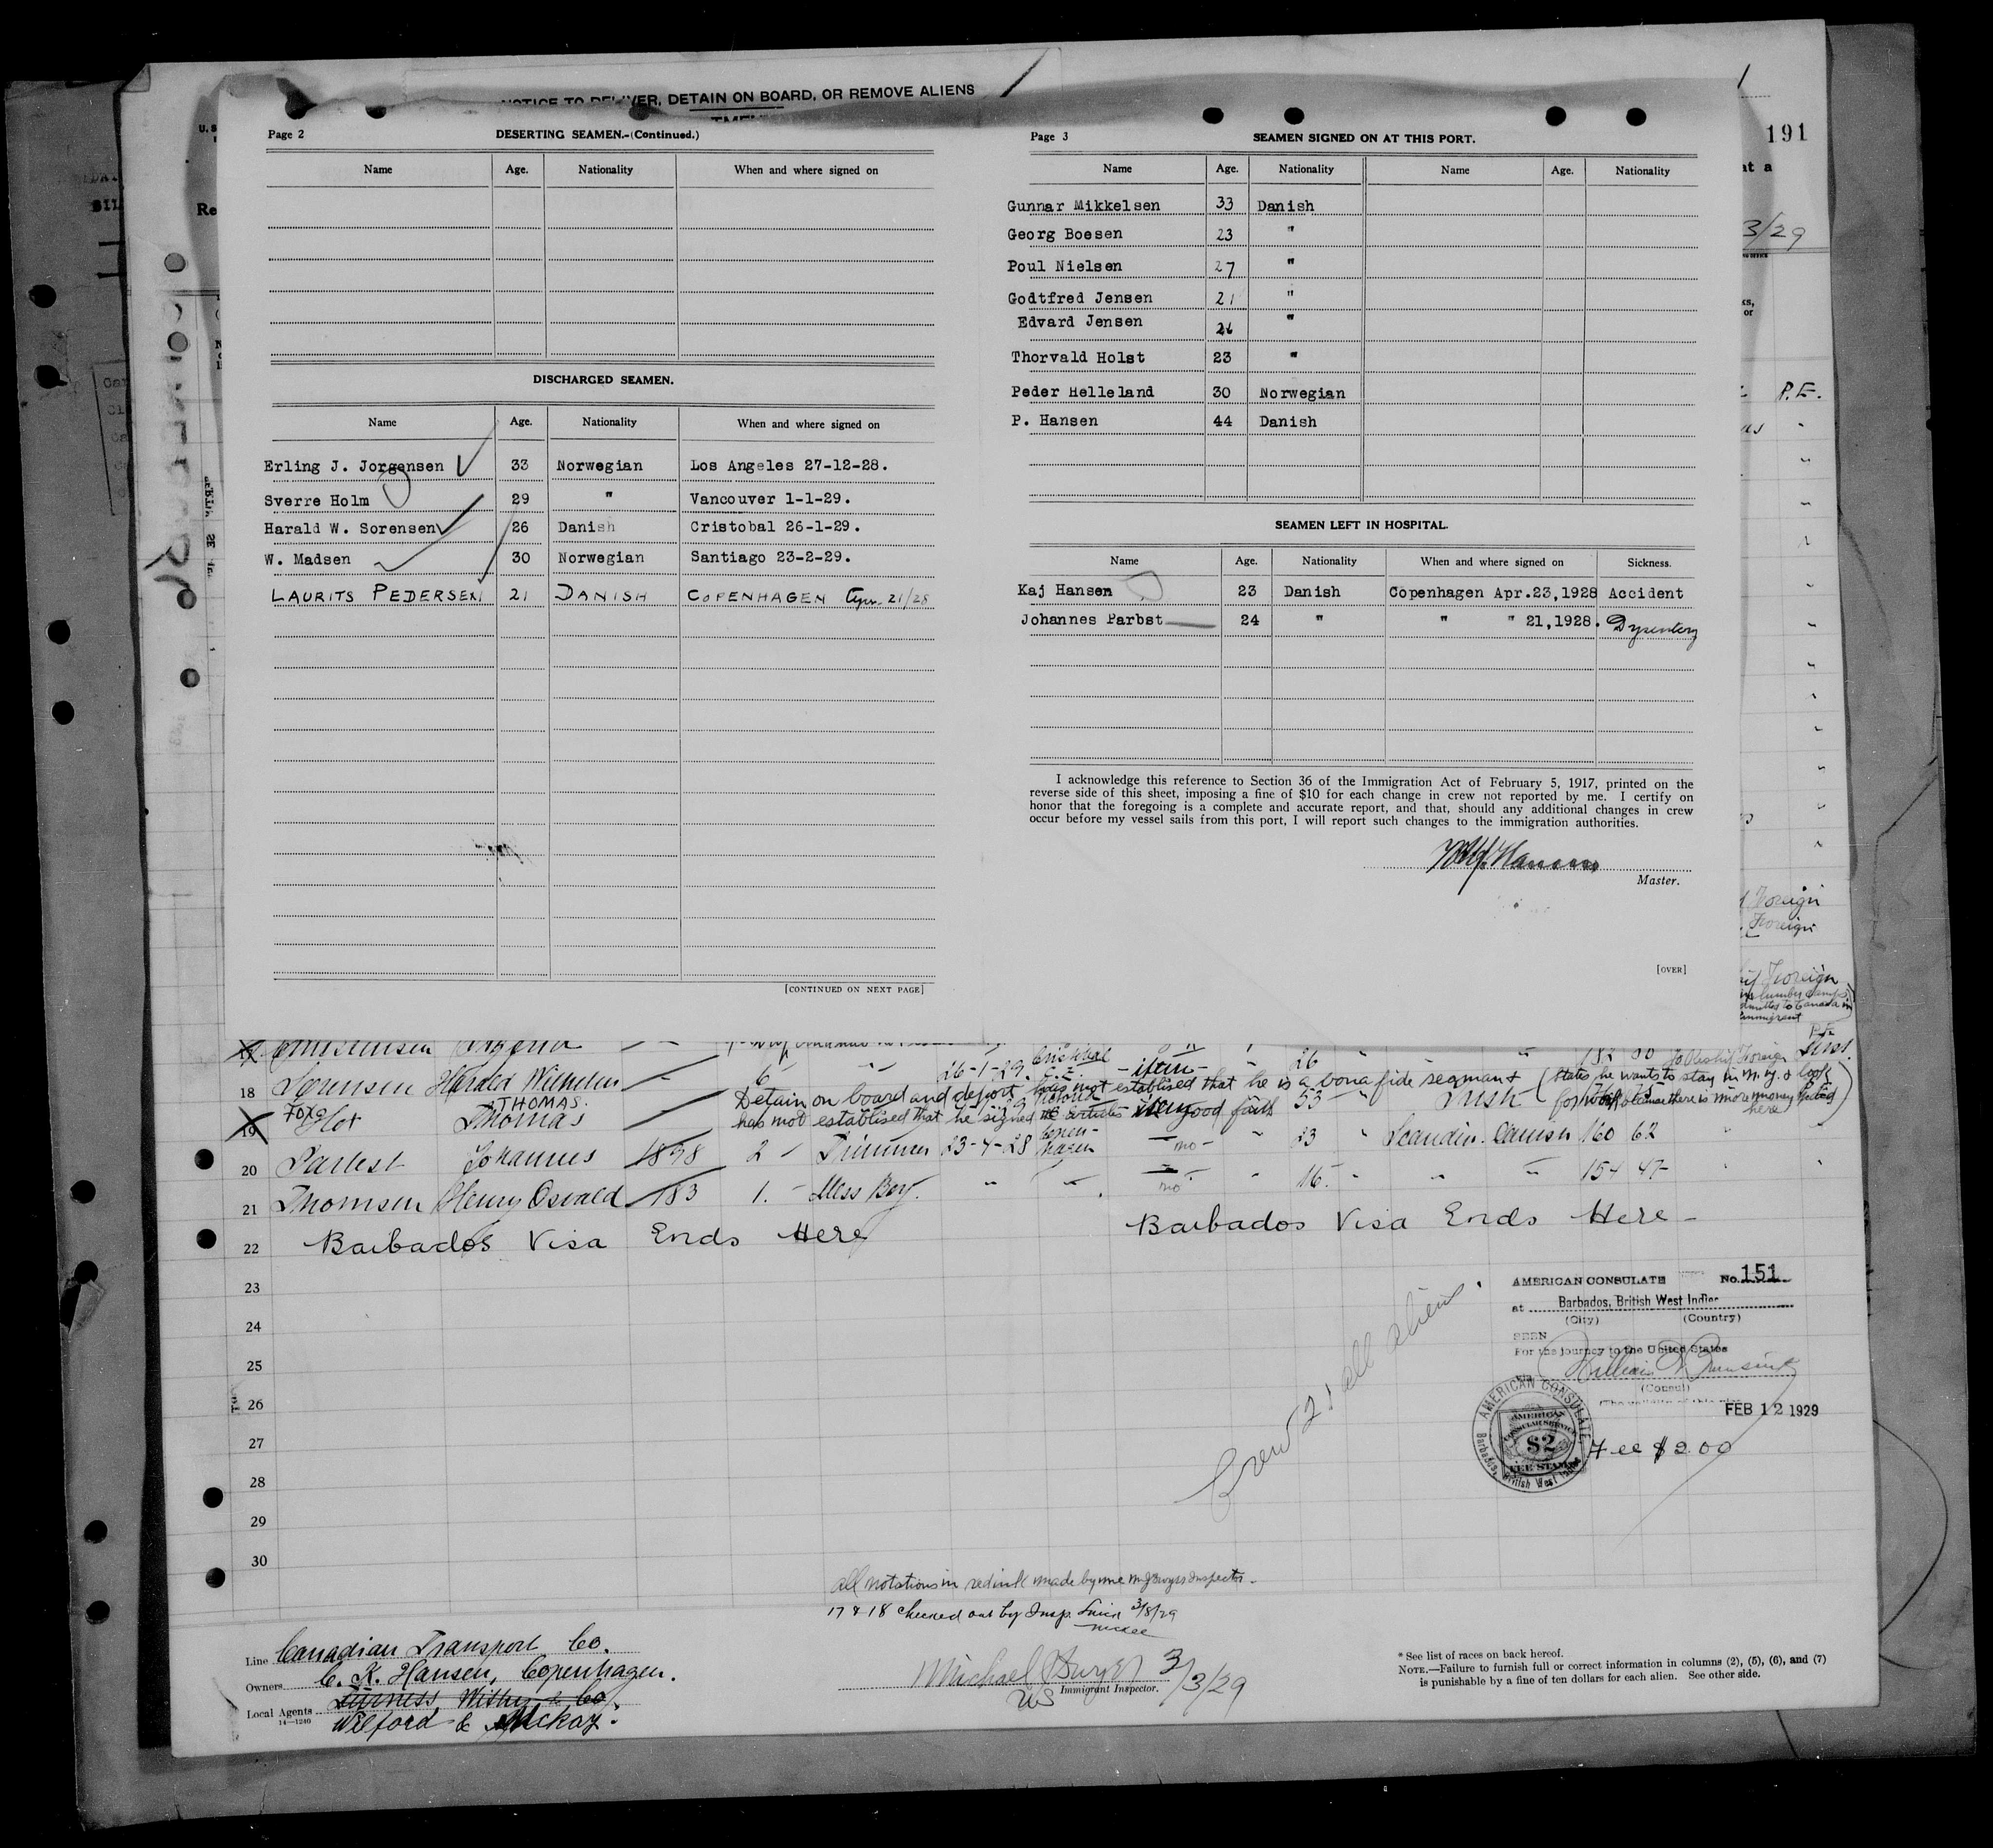 NOTICE TO DELIVER, DETAIN ON BOARD, OR REMOVE ALIENS
191
Page 2 DESERTING SEAMEN.-(Continued.)
Name Age. Nationality When and where signed on
DISCHARGED SEAMEN.
Name Age. Nationality When and where signed on
Erling J. Jorgensen 33 Norwegian Los Angeles 27-12-28.
Sverre Holm 29 " Vancouver 1-1-29.
Harald W. Sorensen 26 Danish Cristobal 26-1-29.
W. Madsen 30 Norwegian Santiago 23-2-29.
LAURITS PEDERSEN 21 DANISH COPENHAGEN Apr. 21/28
[CONTINUED ON NEXT PAGE]
Page 3 SEAMEN SIGNED ON AT THIS PORT.
Name Age. Nationality Name Age. Nationality
Gunnar Mikkelsen 33 Danish
Georg Boesen 23 "
Poul Nielsen 27 "
Godtfred Jensen 21 "
Edvard Jensen "
Thorvald Holst 23 "
Peder Helleland 30 Norwegian
P. Hansen 44 Danish
SEAMEN LEFT IN HOSPITAL.
Name Age. Nationality When and where signed on Sickness.
Kaj Hansen 23 Danish Copenhagen Apr.23,1928 Accident
Johannes Parbst 24 " " " 21,1928. Dysentery
I acknowledge this reference to Section 36 of the Immigration Act of February 5, 1917, printed on the
reverse side of this sheet, imposing a fine of $10 for each change in crew not reported by me. I certify on
honor that the foregoing is a complete and accurate report, and that, should any additional changes in crew
occur before my vessel sails from this port, I will report such changes to the immigration authorities.
Hansen
Master.
[OVER]
3/29
P.E.
Foreign
Foreign
Foreign
18 Sorensen Harald Wilhelm 6 " 26-1-29. Cristobal C.Z. 26 " "
Detain on board and deport has not establised that he is a bona fide seaman & (states he wants to stay in N.Y. & look
19 Thomas THOMAS 53 " Irish
has not establised that he signed articles good faith for work because there is more money here)
20 Johannes 1898 2 - Trimmer 23-4-28 Copenhagen - no - " 23 " Scandin. Danish 160 62
21 Thomsen Henry Osvald 183 1. - Mess Boy. " " no 16. " " " 154 47
22 Barbados Visa Ends Here Barbados Visa Ends Here -
23
24
25
26
27
28
29
30
Crew 21 all aliens
AMERICAN CONSULATE No. 151
at Barbados, British West Indies
(City) (Country)
SEEN
For the journey to the United States
(Consul)
FEB 12 1929
AMERICAN CONSULATE
Barbados, British West Indies
AMERICAN
CONSULAR SERVICE
$2
FEE STAMP
Fee $2.00
all notations in red ink made by me Inspector -
17 & 18 checked out by Insp. 3/8/29
Line Canadian Transport Co.
Owners C. K. Hansen, Copenhagen.
Local Agents Furness Withy & Co.
14—1240
Wilford & McKay.
Michael Dwyer 3/3/29
US Immigrant Inspector.
* See list of races on back hereof.
NOTE.—Failure to furnish full or correct information in columns (2), (5), (6), and (7)
is punishable by a fine of ten dollars for each alien. See other side.